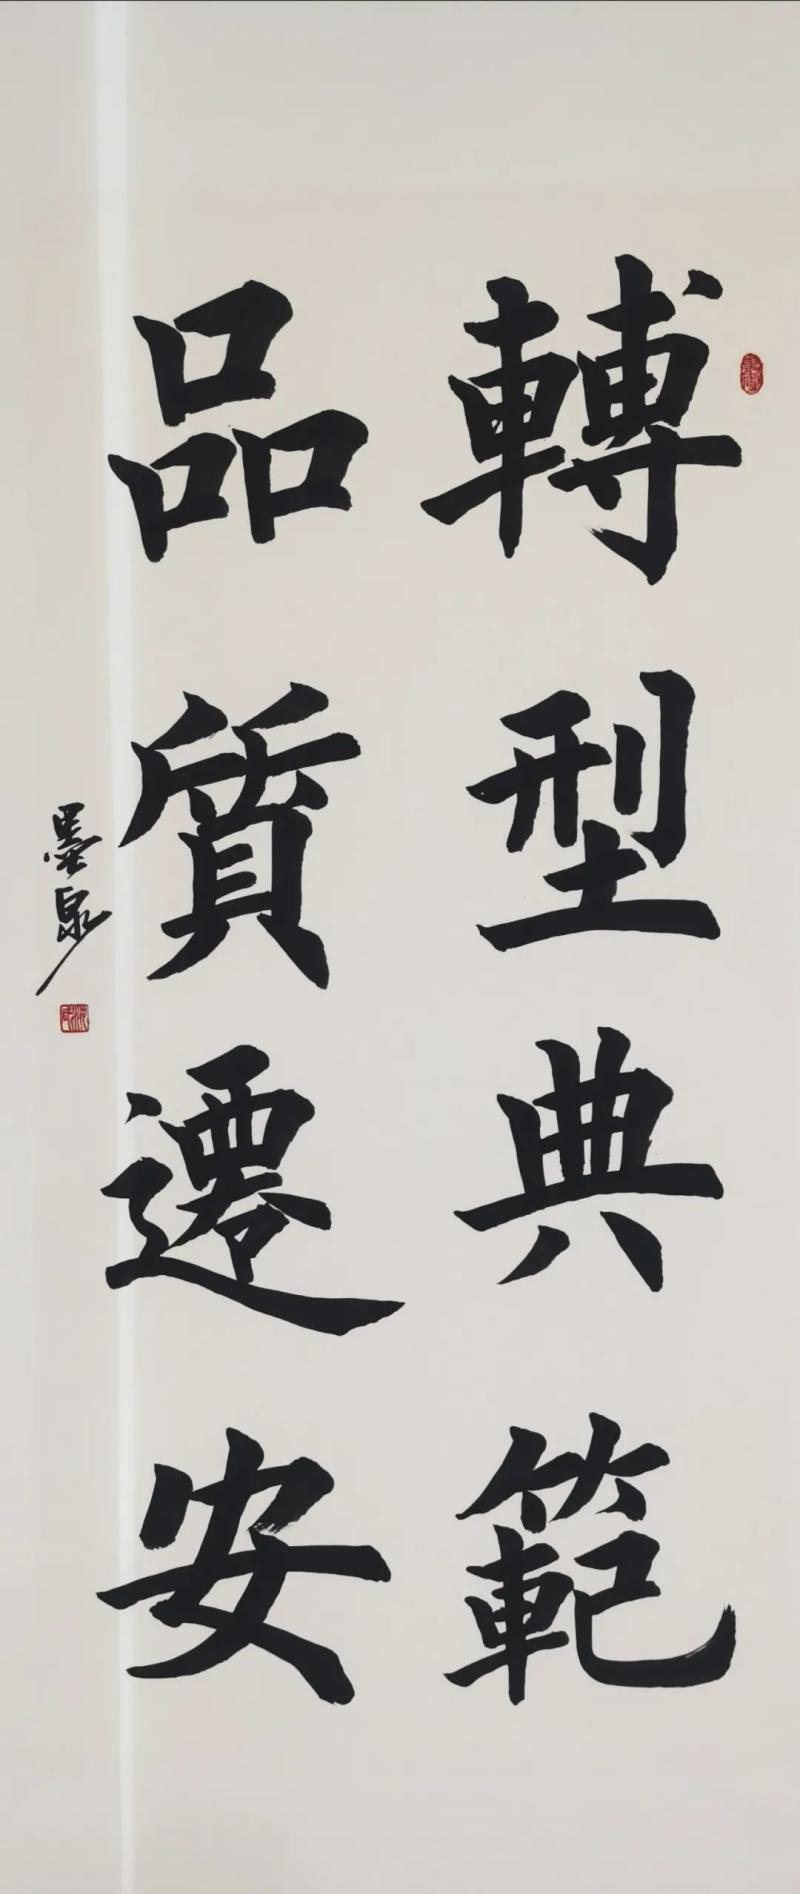 轉型典範
品質遷安
墨泉